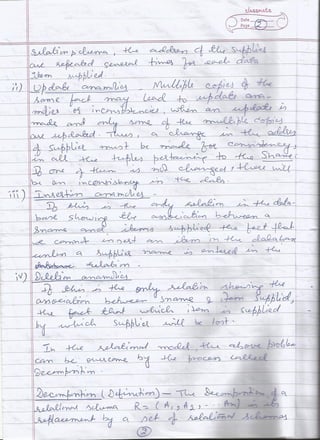 classmate
Date
Page 2
relation schema, the address of the supplier
are repeated several times for each data
Item supplied.
ii) Update anamolies Multiple copies of the
same fact may lead to update ana-
molies or inconsistencies, when an update is
made and only some of the multiple copies
are updated. Thus, a change in the address
of Supplier must be made for consistency,
in all the tuples pertaining to the Sname
If one of them is not changed, there will
be an inconsistency in the data.
iii) Insertion anamolies
If this is the only relation in the data-
base showing the association between a
Sname and items supplied the fact that
we cannot insert an item in the database
unless a supplier name is entered in the
relation
iv) Deletion anamolies
If this is the only relation showing the
association between Sname & item supplied,
the fact that which item is supplied
by which supplier will be lost.
In the relational model the above problem
can be overcome by the process called
Decomposition.
Decomposition (Definition) – The Decomposition of a
relational schema R = (A1, A2, ... An) is its
replacement by a set of relational schemas
2